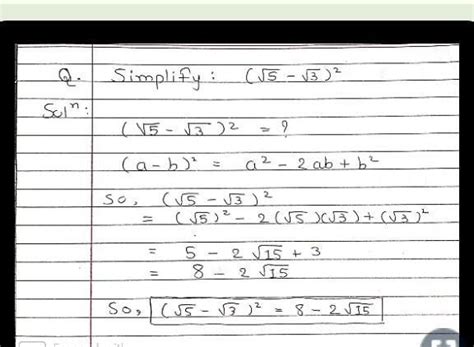 Q. Simplify : (√5 - √3)²
Solⁿ:
(√5 - √3)² = ?
(a-b)² = a² - 2ab + b²
So, (√5 - √3)²
= (√5)² - 2(√5)(√3) + (√3)²
= 5 - 2√15 + 3
= 8 - 2√15
So, (√5 - √3)² = 8 - 2√15